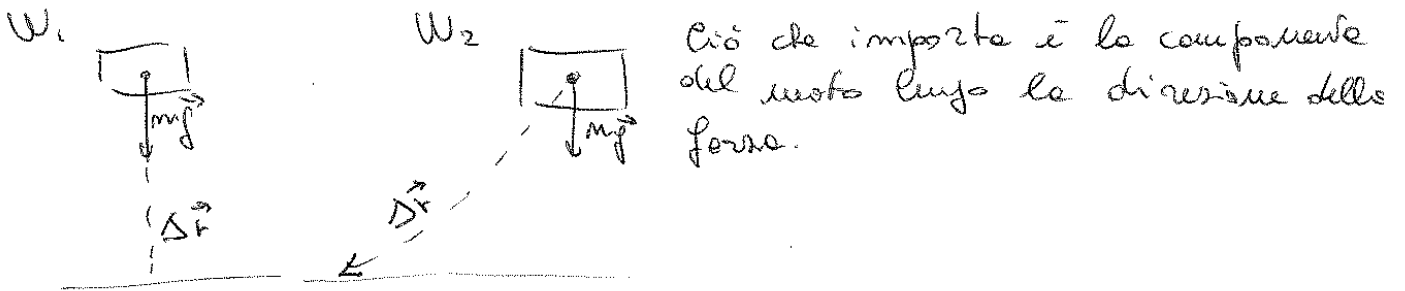 W₁
W₂
Ciò che importa è la componente
del moto lungo la direzione della
forza.
mg⃗
mg⃗
Δr⃗
Δr⃗